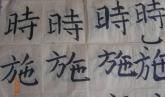 時時時時
施施施施